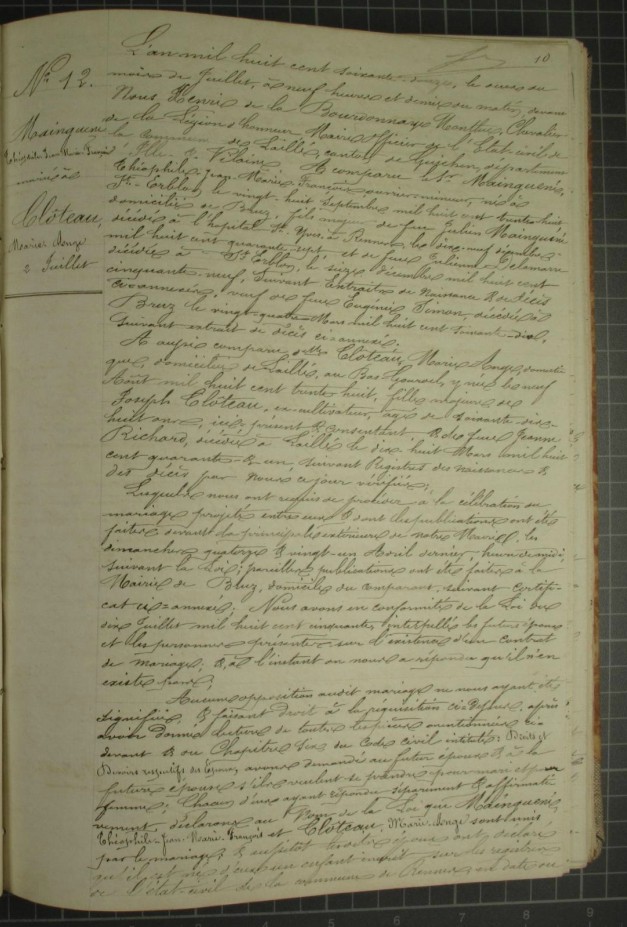 10
N° 12.
Mainguené
Théophile Jean Marie François
marié à
Clôteau,
Marie Ange
2 Juillet
L'an mil huit cent soixante-douze, le deux du
mois de Juillet, à neuf heures et demie du matin, devant
Nous Henri de la Bourdonnaye Montluc, Chevalier
de la Légion d'honneur, Maire officier de l'Etat civil de
la Commune de Laillé, canton de Guichen, département
d'Ille & Vilaine, A comparu le Sr Mainguené,
Théophile Jean Marie François, ouvrier mineur, né à
St Erblon, le vingt-huit Septembre mil huit cent trente-huit
domicilié de Bruz, fils majeur de feu Julien Mainguené
décédé à l'hôpital St Yves, à Rennes, le dix-neuf décembre
mil huit cent quarante-sept, et de feue Julienne Delamare
décédée à St Erblon, le seize décembre mil huit cent
cinquante-neuf, suivant extraits de Naissance & de Décès
ci-annexés; veuf de feue Eugénie Simon, décédée à
Bruz le vingt-quatre Mars mil huit cent soixante-dix,
suivant extrait de décès ci-annexé.
A aussi comparu Clôteau, Marie Ange, domesti-
que, domiciliée de Laillé, au Bas, y née le neuf
Août mil huit cent trente-huit, fille majeure de
Joseph Clôteau, ex-cultivateur, âgé de soixante-dix-
huit ans, ici présent & consentant & de feue Jeanne
Richard, décédée à Laillé le dix-huit Mars mil huit
cent quarante & un, suivant Registres des naissances &
des décès par Nous ce jour vérifiés;
Lesquels nous ont requis de procéder à la célébration du
mariage projeté entre eux & dont les publications ont été
faites devant la principale extérieure de notre Mairie, les
dimanches quatorze & vingt-un Avril dernier, heure de midi,
suivant la Loi; pareilles publications ont été faites à la
Mairie de Bruz, domicile du comparant, suivant certifi-
cat ci-annexé. Nous avons en conformité de la Loi du
dix Juillet mil huit cent cinquante, interpellé les futurs époux
et les personnes présentes sur l'existence d'un contrat
de mariage; & à l'instant on nous a répondu qu'il n'en
existe pas;
Aucune opposition audit mariage ne nous ayant été
signifiée, & faisant droit à la réquisition ci-dessus, après
avoir donné lecture de toutes les pièces mentionnées ci-
devant & du Chapitre Six du Code civil intitulé: Droits et
Devoirs respectifs des Epoux, avons demandé au futur époux & à la
future épouse s'ils veulent se prendre pour mari et pour
femme; Chacun d'eux ayant répondu séparément & affirmati-
vement, déclarons au Nom de la Loi que Mainguené,
Théophile Jean Marie François et Clôteau, Marie Ange sont unis
par le mariage; & aussitôt lesdits époux ont déclaré
qu'il est né d'eux un enfant inscrit sur les registres
de l'état-civil de la commune de Rennes, en date du